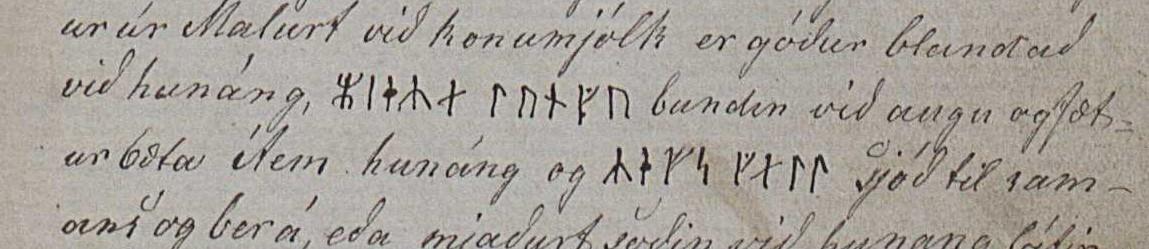 ur úr Malurt við konumjólk er góður blandað
við hunáng, ᛯᛁᚽᛦᛆ ᛚᚢᚾᚠᚢ bundin við augu og fæt=
ur bæta Item hunáng og ᛦᚽᚠᛋ ᚠᛆᛚᛚ sjóð til sam-
ans og ber á, eða mjaðurt soðin við hunang